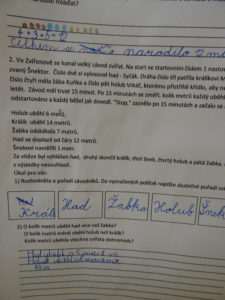 narodilo mláďat?
4 + 3 + 5 = 12
Celkem se narodilo 12 m
2. Ve Zvířenově se konal velký závod zvířat. Na start se startovním číslem 1 nastou
vaný Šnektor. Číslo dvě si vylosoval had - Syčák. Dráha číslo tři patřila králíkovi M
číslo čtyři měla žába Kuňka a číslo pět holub Vrkal, kterému přistřihli křídlo, aby n
letět. Závod měl trvat 15 minut. Po 15 minutách se změří, kolik metrů každý uběhl
odstartováno a každý běžel jak dovedl. "Stop," zaznělo po 15 minutách a začalo se
Holub uběhl 6 metrů.
Králík uběhl 14 metrů.
Žabka odskákala 7 metrů.
Had se doplazil od čáry 12 metrů.
Šnekoni naměřili 1 metr.
Za vítěze byl vyhlášen had, druhý skončil králík, třetí šnek, čtvrtý holub a pátá žabka.
s výsledky nesouhlasil.
Úkol pro vás:
1) Rozhodněte o pořadí závodníků. Do vyznačených políček napište skutečné pořadí zv
Králí Had Žabka Holub Šnek
2) O kolik metrů uběhl had více než žabka?
O kolik metrů méně uběhl holub než králík?
Kolik metrů uběhla všechna zvířata dohromady?
Had uběhl o 5 metrů víc
Holub uběhl o 8 metrů méně
40 m